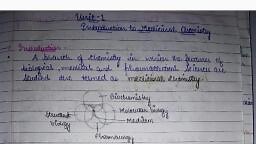 Unit-1
Introduction to Medicinal Chemistry
Introduction
A branch of chemistry in which the features of
biological, medical and pharmaceutical sciences are
studied are termed as medicinal chemistry.
Biochemistry
Molecular biology
Structural
biology
Medicine